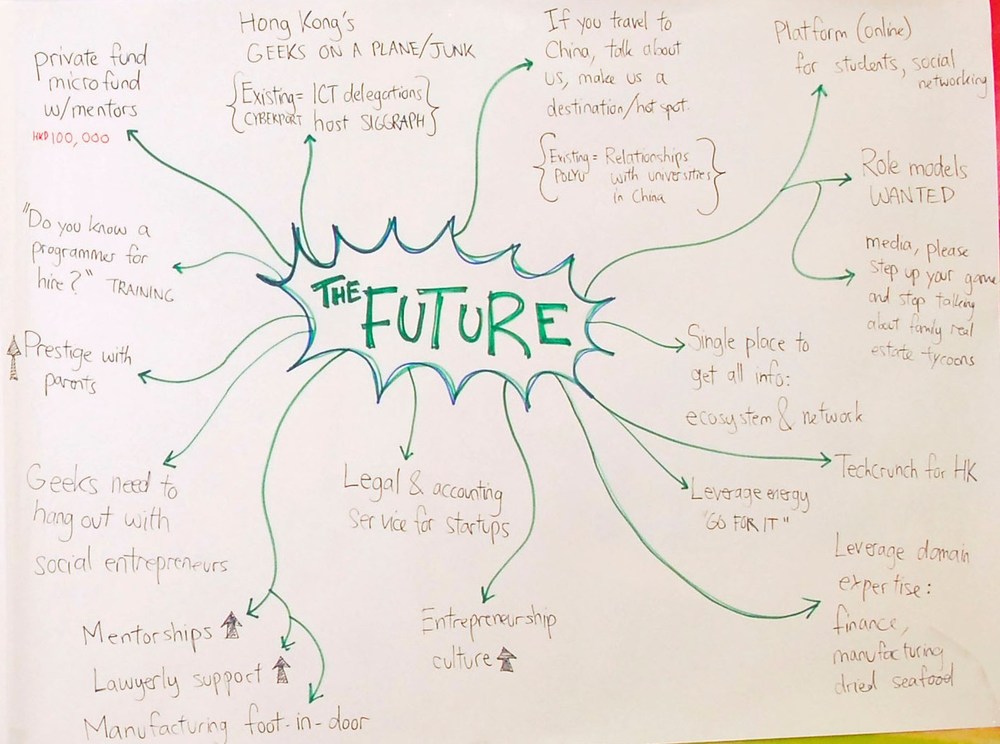 private fund
microfund
w/mentors
HKD 100,000
Hong Kong's
GEEKS ON A PLANE/JUNK
{Existing = ICT delegations}
CYBERPORT host SIGGRAPH
If you travel to
China, talk about
us, make us a
destination/hot spot.
{Existing = Relationships}
POLYU with universities
in China
Platform (online)
for students, social
networking
Role models
WANTED
media, please
step up your game
and stop talking
about family real
estate tycoons
"Do you know a
programmer for
hire?" TRAINING
THE
FUTURE
Prestige with
parents
Single place to
get all info:
ecosystem & network
Techcrunch for HK
Geeks need to
hang out with
social entrepreneurs
Legal & accounting
service for startups
Leverage energy
"GO FOR IT"
Leverage domain
expertise:
finance,
manufacturing
dried seafood
Mentorships
Lawyerly support
Manufacturing foot-in-door
Entrepreneurship
culture